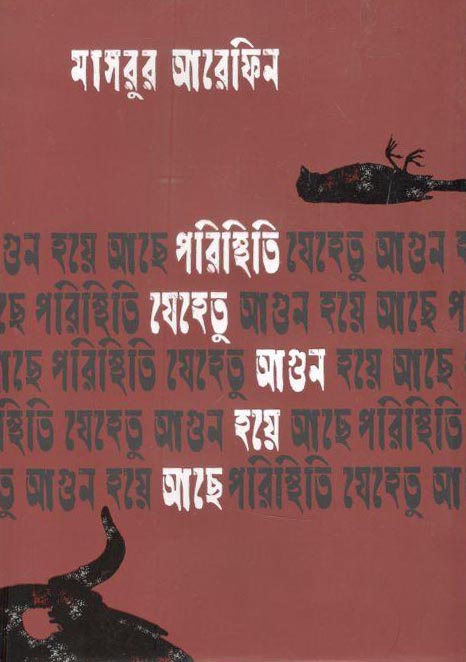 মাসরুর আরেফিন
গুন হয়ে আছে পরিস্থিতি যেহেতু আগুন হ
ছে পরিস্থিতি যেহেতু আগুন হয়ে আছে প
আছে পরিস্থিতি যেহেতু আগুন হয়ে আছে
স্থিতি যেহেতু আগুন হয়ে আছে পরিস্থিতি
তু আগুন হয়ে আছে পরিস্থিতি যেহেতু আ